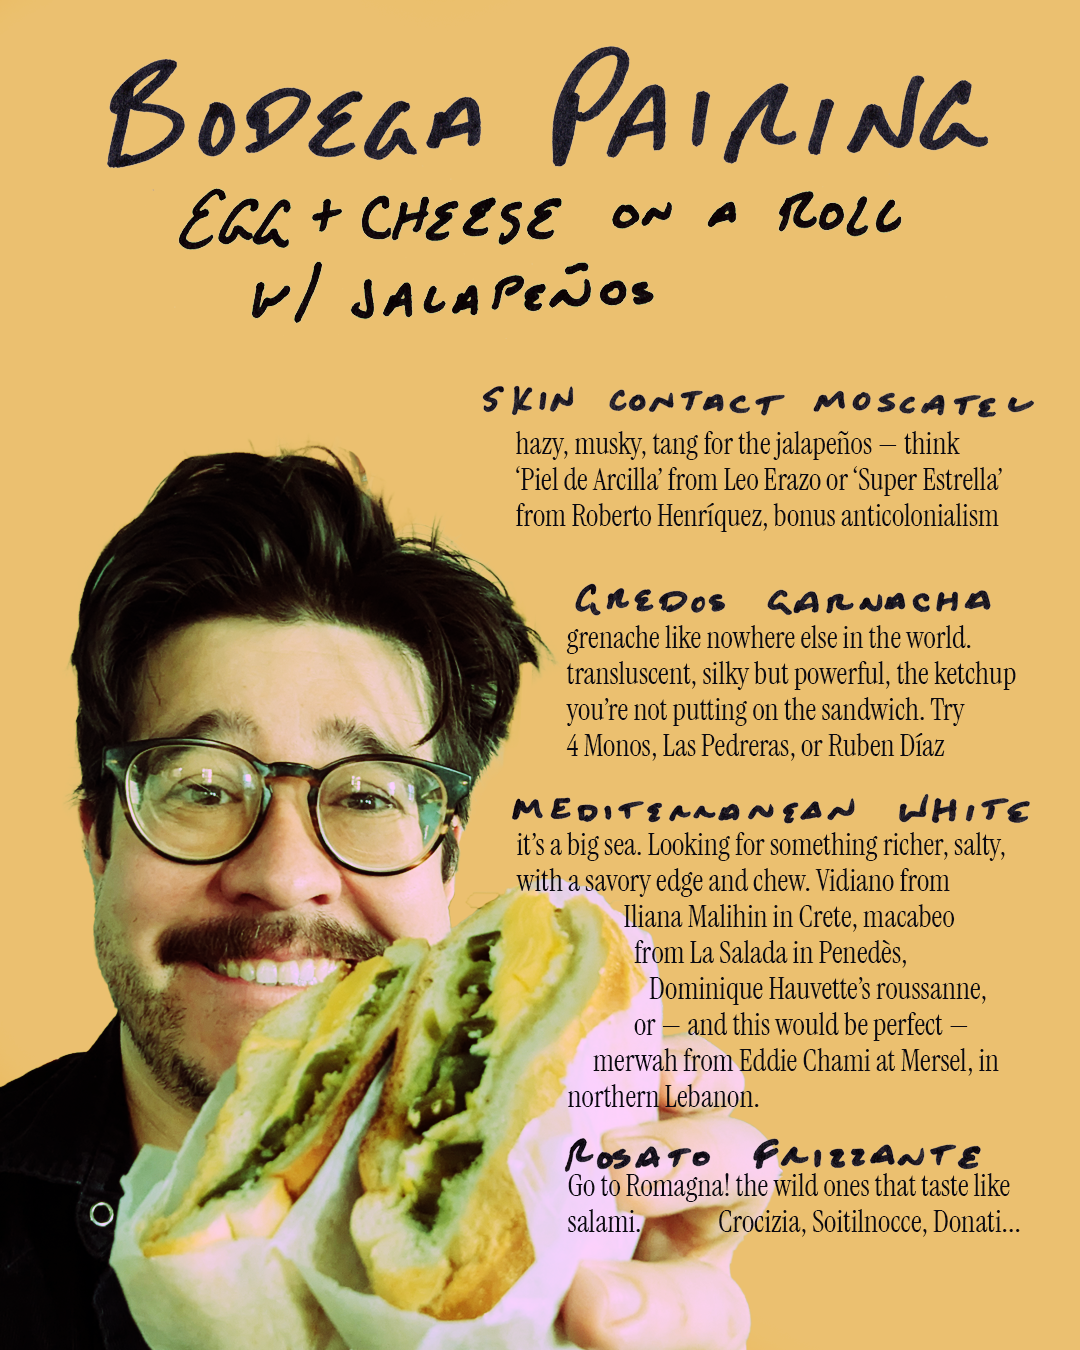 BODEGA PAIRING
EGG + CHEESE ON A ROLL
W/ JALAPEÑOS
SKIN CONTACT MOSCATEL
hazy, musky, tang for the jalapeños — think
‘Piel de Arcilla’ from Leo Erazo or ‘Super Estrella’
from Roberto Henríquez, bonus anticolonialism
GREDOS GARNACHA
grenache like nowhere else in the world.
transluscent, silky but powerful, the ketchup
you’re not putting on the sandwich. Try
4 Monos, Las Pedreras, or Ruben Díaz
MEDITERRANEAN WHITE
it’s a big sea. Looking for something richer, salty,
with a savory edge and chew. Vidiano from
Iliana Malihin in Crete, macabeo
from La Salada in Penedès,
Dominique Hauvette’s roussanne,
or — and this would be perfect —
merwah from Eddie Chami at Mersel, in
northern Lebanon.
ROSATO FRIZZANTE
Go to Romagna! the wild ones that taste like
salami. Crocizia, Soitilnocce, Donati...